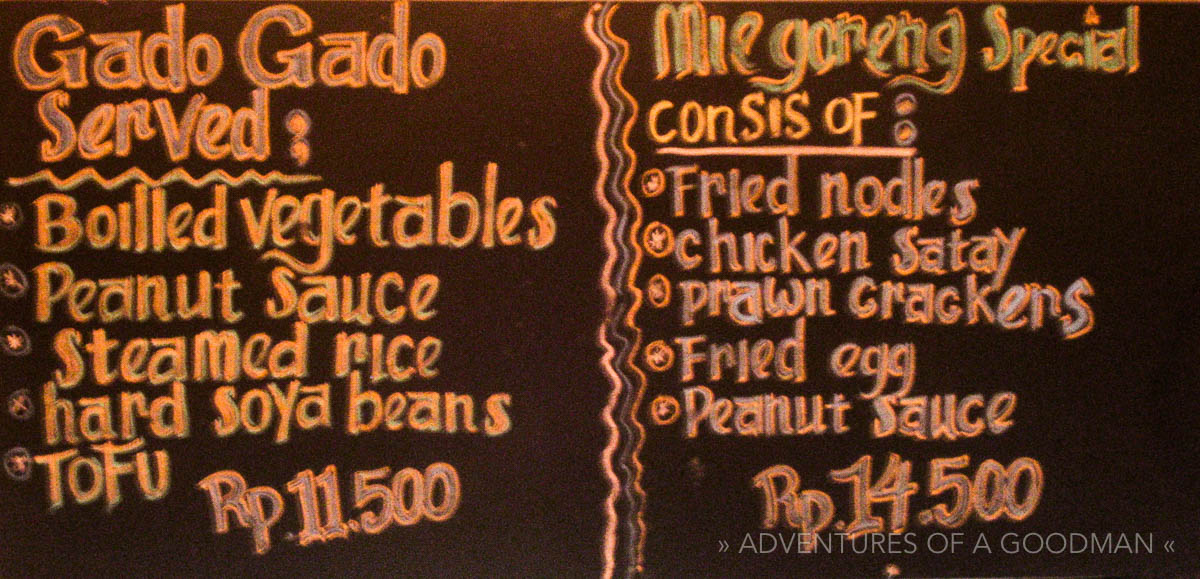 Gado Gado
Served :
Boilled vegetables
Peanut sauce
Steamed rice
hard soya beans
TOFU
Rp.11.500
Mie goreng Special
consis of :
Fried nodles
chicken satay
prawn crackers
Fried egg
Peanut sauce
Rp.14.500
» ADVENTURES OF A GOODMAN «